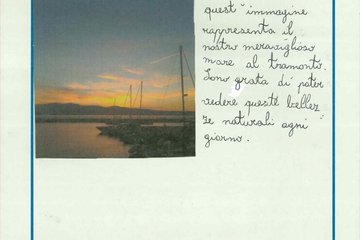 quest'immagine
rappresenta il
nostro meraviglioso
mare al tramonto.
Sono grata di poter
vedere queste bellez
ze naturali ogni
giorno.